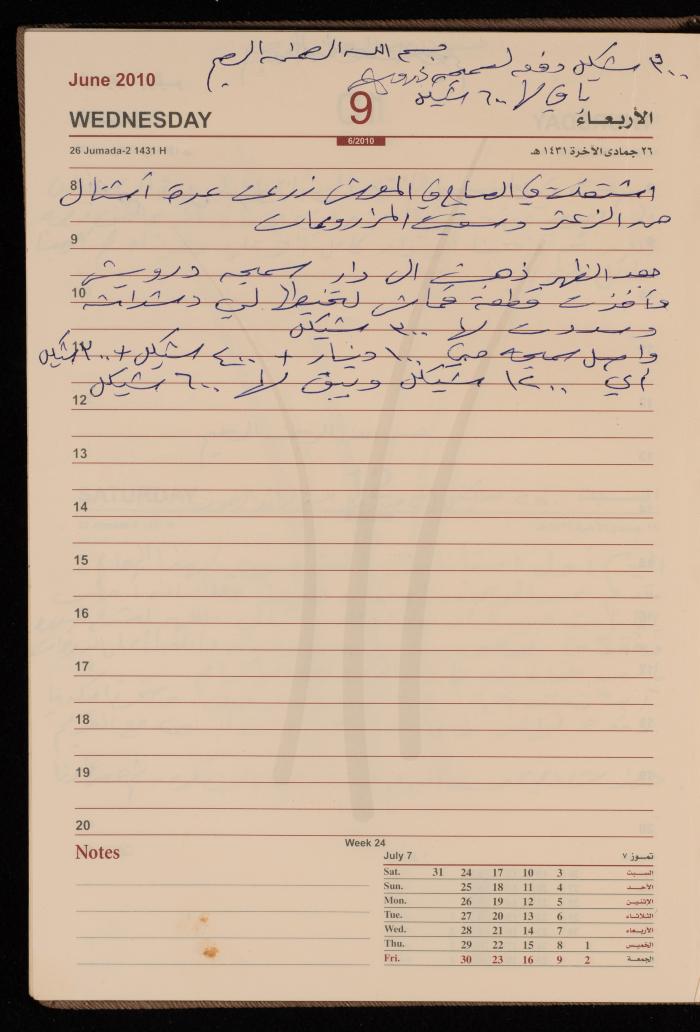 بسم الله الرحمن الرحيم
٣٠٠ شيكل دفعه لسميحه درويش
باقي لها ٦٠٠ شيكل
June 2010
9
WEDNESDAY
الأربعاء
6/2010
26 Jumada-2 1431 H
٢٦ جمادى الآخرة ١٤٣١ هـ
8
اشتغلت في الصباح في الحوش زرعت عدة أشتال
من الزعتر وسقيت المزروعات
9
بعد الظهر ذهبت الى دار سميحه درويش
10
وأخذت قطعة قماش لتخيطها لي دشداشة
وسددت لها ٣٠٠ شيكل
11
واصل سميحه مني ١٠٠ دينار + ٤٠٠ شيكل + ٣٠٠ شيكل
أي ١٢٠٠ شيكل ويبقى لها ٦٠٠ شيكل
12
13
14
15
16
17
18
19
20
Notes
Week 24
July 7
تمـوز ٧
Sat. 31 24 17 10 3 السـبت
Sun. 25 18 11 4 الأحـد
Mon. 26 19 12 5 الإثنـين
Tue. 27 20 13 6 الثلاثـاء
Wed. 28 21 14 7 الأربـعاء
Thu. 29 22 15 8 1 الخميـس
Fri. 30 23 16 9 2 الجمعـة